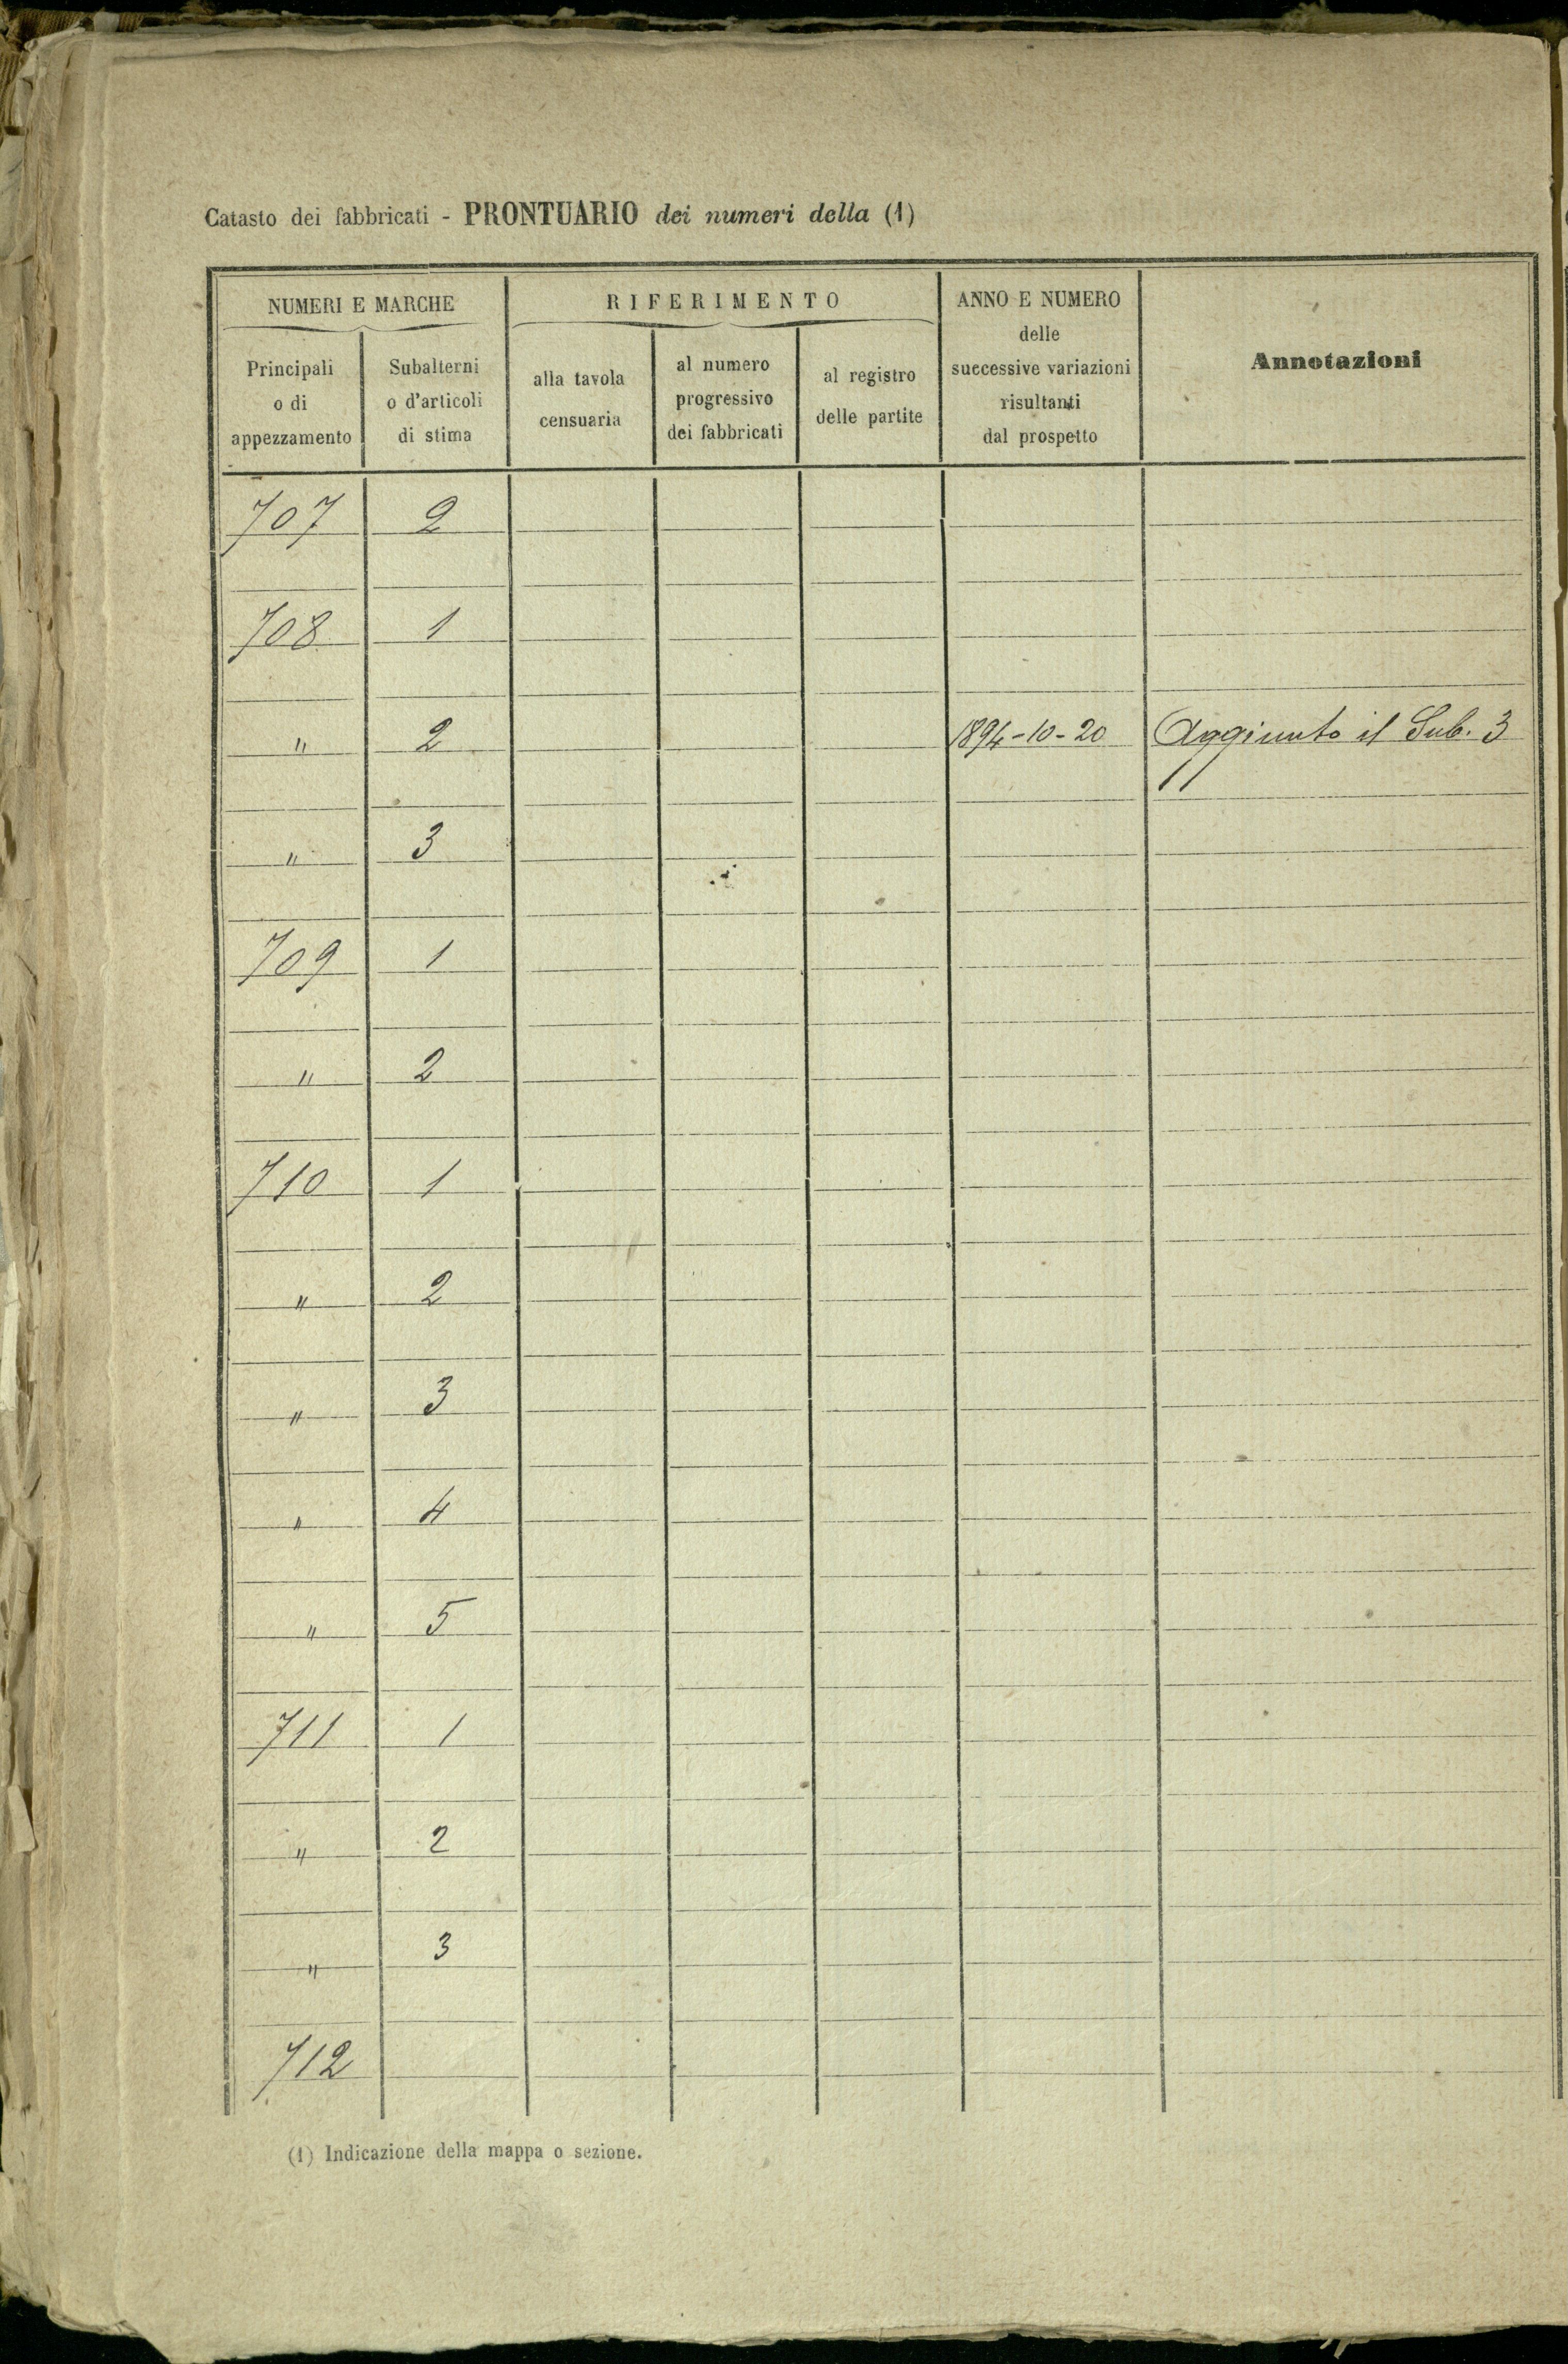 Catasto dei fabbricati - PRONTUARIO dei numeri della (1)
NUMERI E MARCHE
Principali
o di
appezzamento
Subalterni
o d'articoli
di stima
RIFERIMENTO
alla tavola
censuaria
al numero
progressivo
dei fabbricati
al registro
delle partite
ANNO E NUMERO
delle
successive variazioni
risultanti
dal prospetto
Annotazioni
707 2
708 1
" 2 1894-10-20 Aggiunto il Sub. 3
" 3
709 1
" 2
710 1
" 2
" 3
" 4
" 5
711 1
" 2
" 3
712
(1) Indicazione della mappa o sezione.